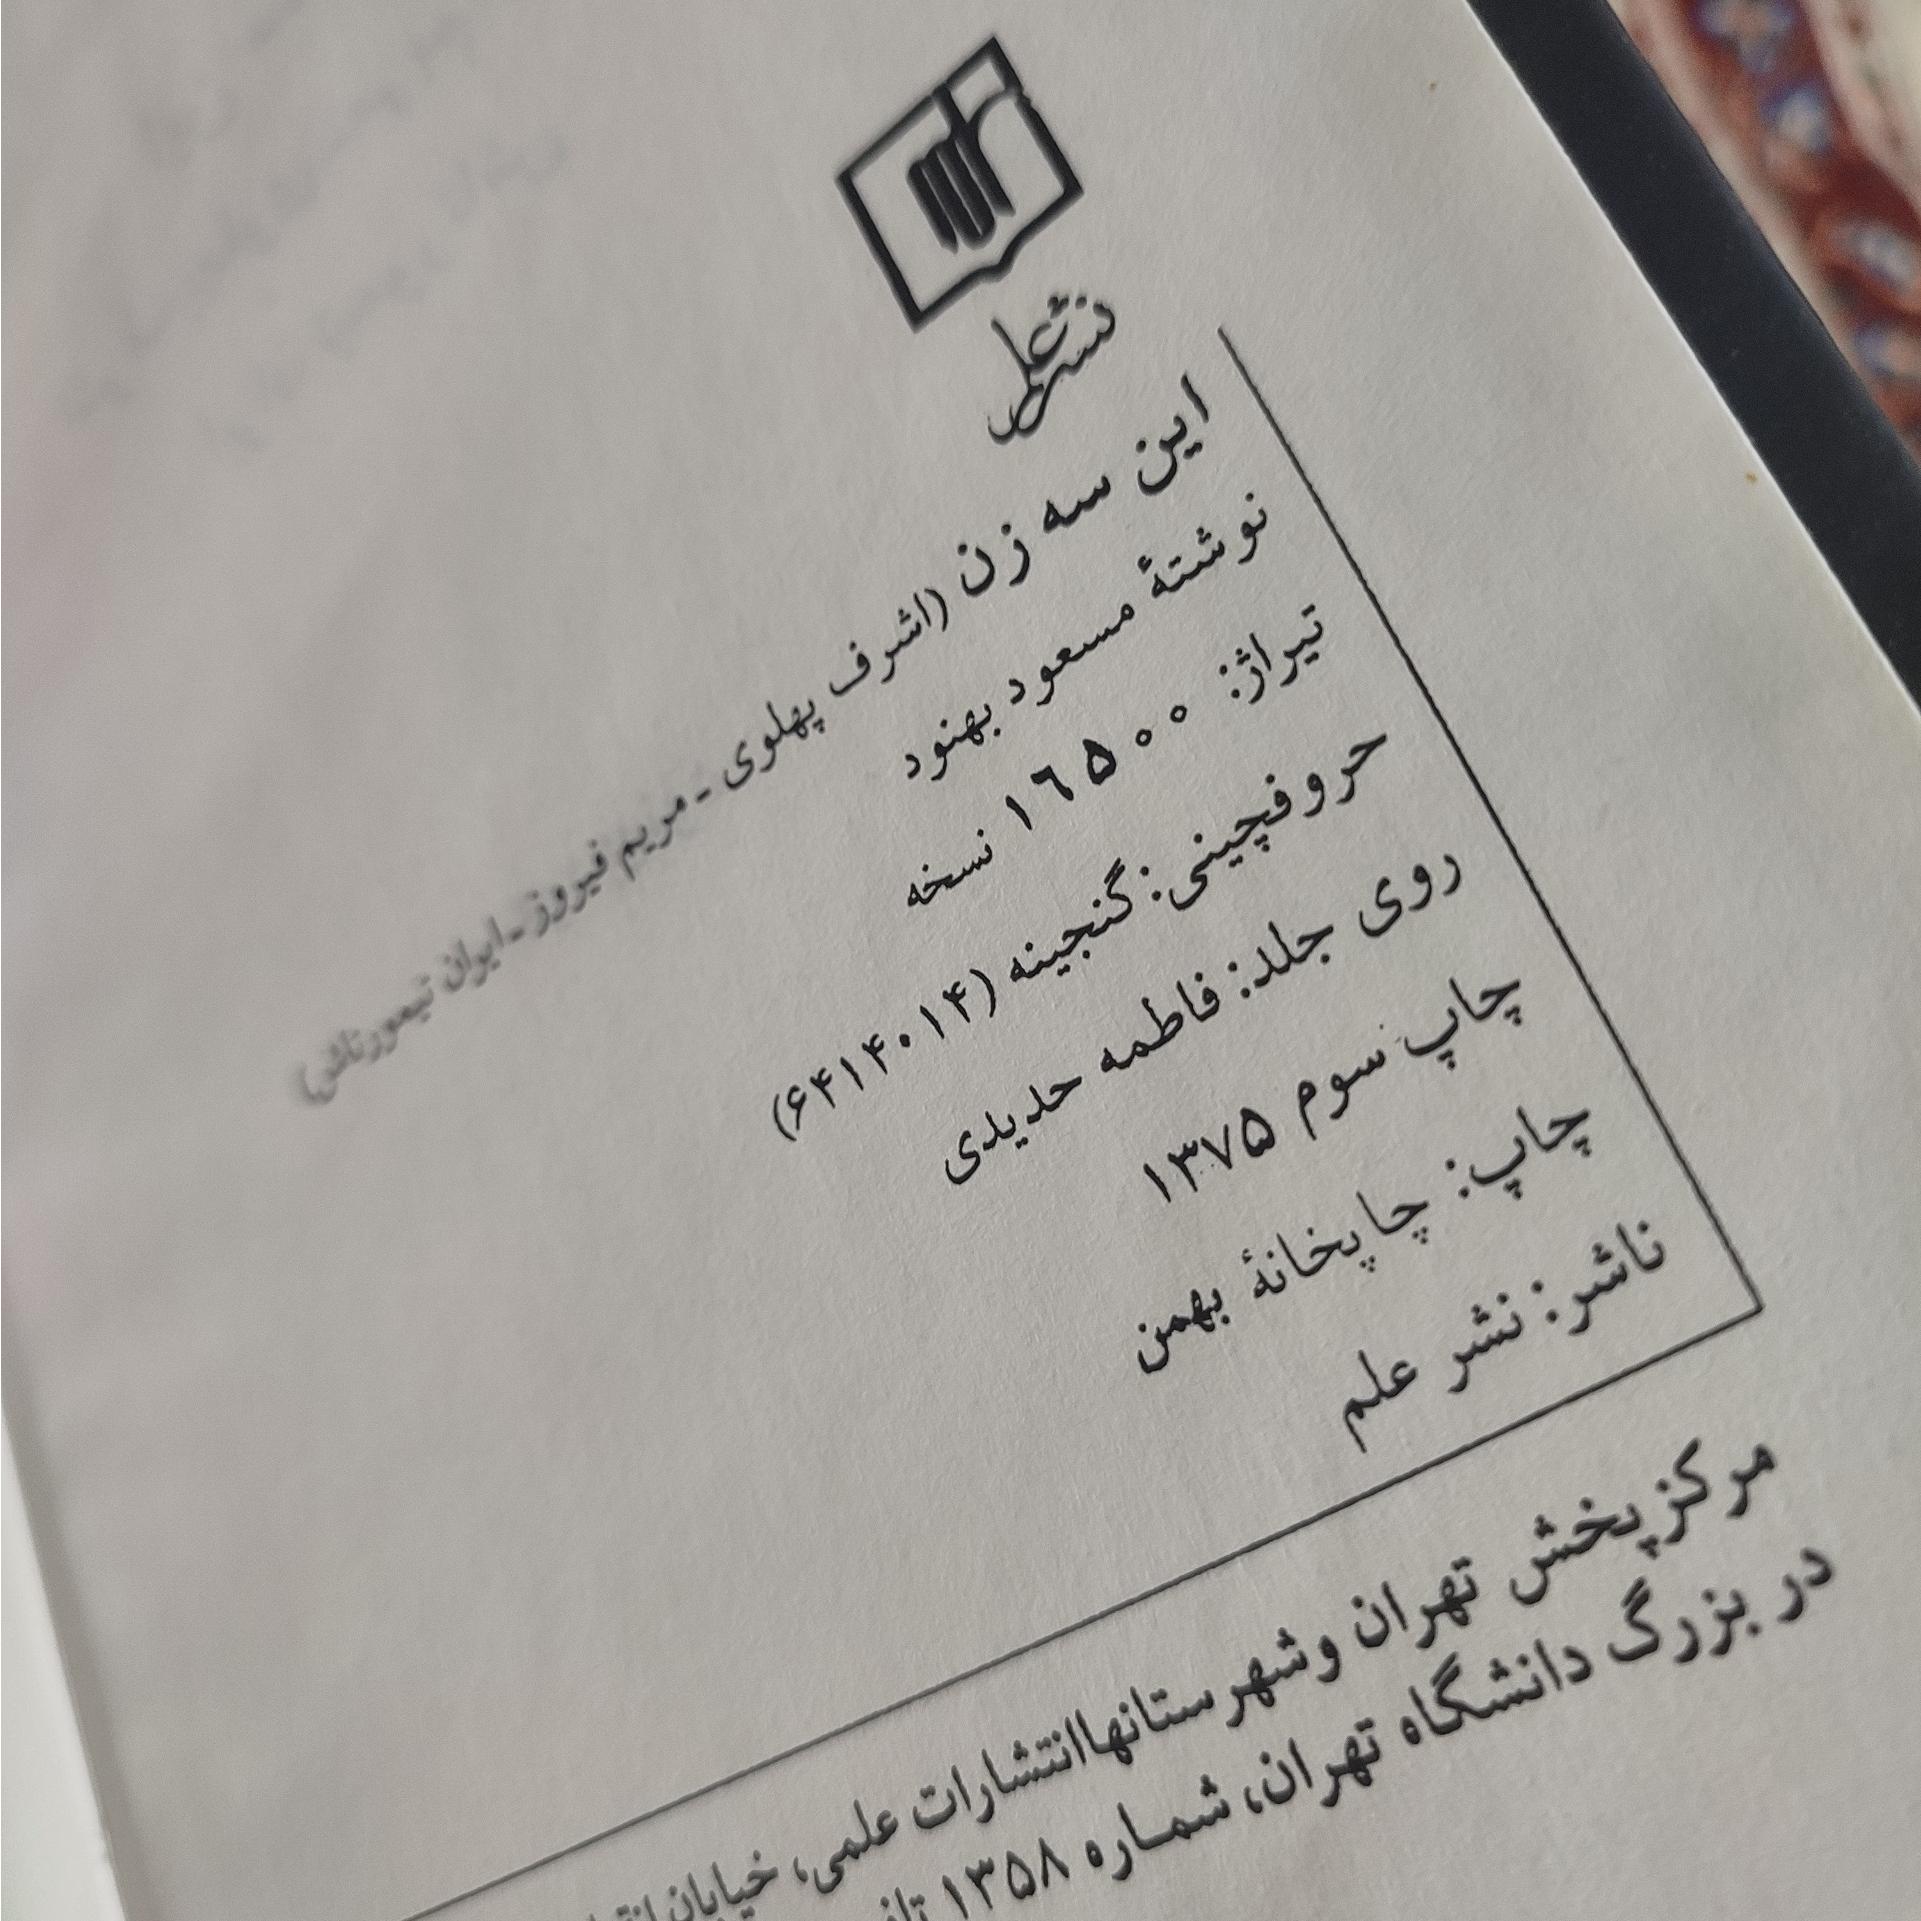 نشر علم
این سه زن (اشرف پهلوی - مریم فیروز - ایران تیمورتاش)
نوشتهٔ مسعود بهنود
تیراژ: ۱۶۵۰۰ نسخه
حروفچینی: گنجینه (۶۴۱۴۰۱۴)
روی جلد: فاطمه حدیدی
چاپ سوم ۱۳۷۵
چاپ: چاپخانهٔ بهمن
ناشر: نشر علم
مرکز پخش تهران و شهرستانها انتشارات علمی، خیابان
در بزرگ دانشگاه تهران، شماره ۱۳۵۸